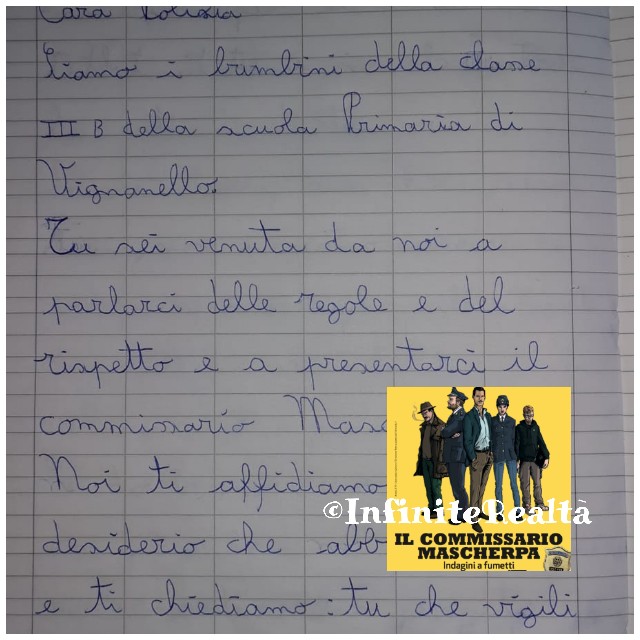 Cara Polizia
Siamo i bambini della classe
III B della scuola Primaria di
Vignanello.
Tu sei venuta da noi a
parlarci delle regole e del
rispetto e a presentarci il
commissario Masc
Noi ti affidiamo
desiderio che abb
e ti chiediamo: tu che vigili
©InfiniteRealtà
IL COMMISSARIO
MASCHERPA
Indagini a fumetti